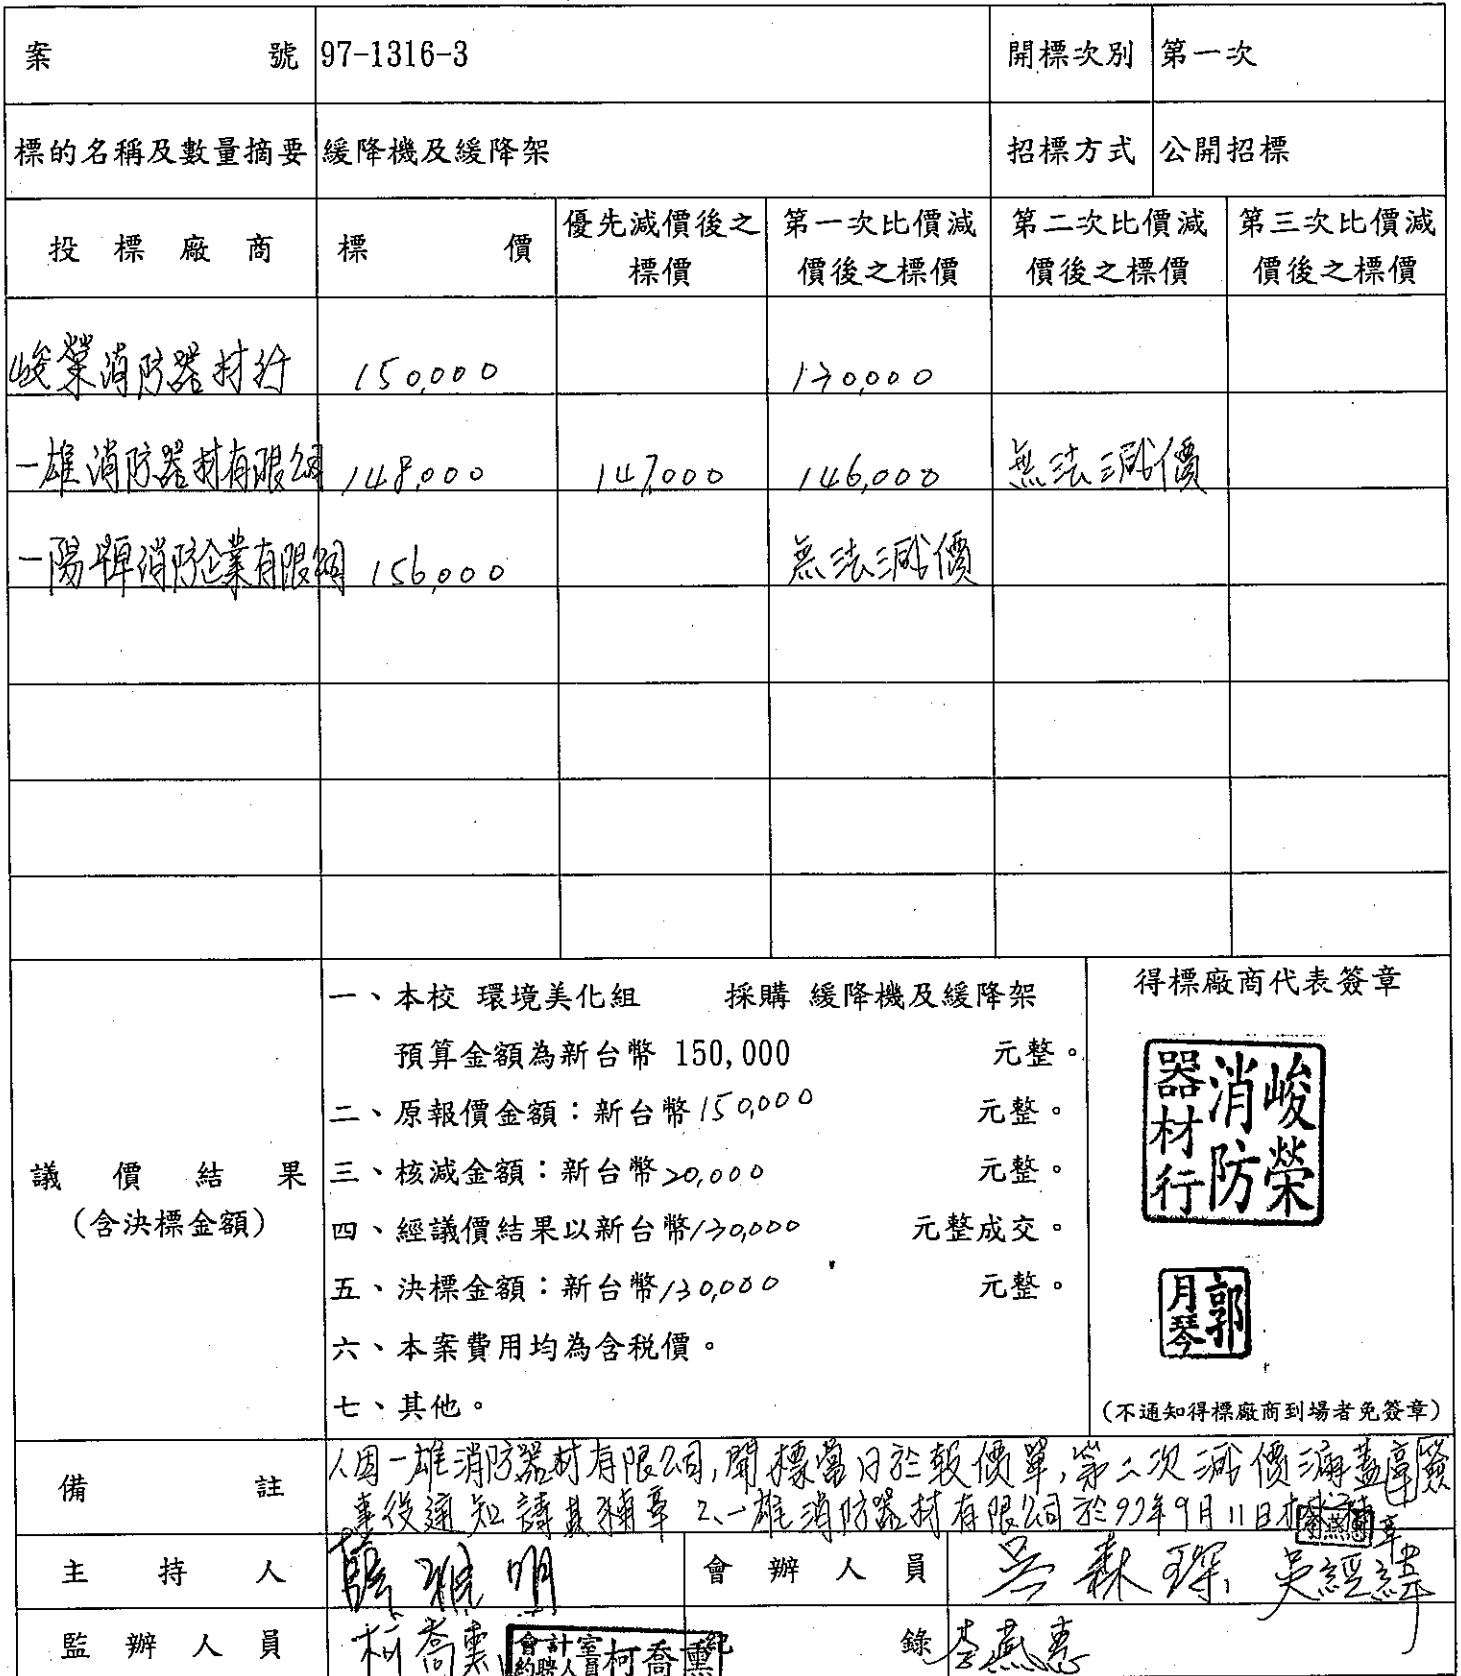 案號 97-1316-3 開標次別 第一次
標的名稱及數量摘要 緩降機及緩降架 招標方式 公開招標
投標廠商 標價 優先減價後之標價 第一次比價減價後之標價 第二次比價減價後之標價 第三次比價減價後之標價
峻榮消防器材行 150,000 130,000
一雄消防器材有限公司 148,000 147,000 146,000 無法減價
一陽牌消防企業有限公司 156,000 無法減價
議價結果
(含決標金額)
一、本校 環境美化組 採購 緩降機及緩降架
預算金額為新台幣 150,000 元整。
二、原報價金額：新台幣150,000 元整。
三、核減金額：新台幣20,000 元整。
四、經議價結果以新台幣130,000 元整成交。
五、決標金額：新台幣130,000 元整。
六、本案費用均為含稅價。
七、其他。
得標廠商代表簽章
峻榮消防器材行
郭月琴
(不通知得標廠商到場者免簽章)
備註
1.因一雄消防器材有限公司,開標當日於報價單,第二次減價漏蓋章
事後通知請其補章 2.一雄消防器材有限公司於97年9月11日
主持人 會辦人員 吳經緯
監辦人員 柯喬熏 會計室約聘人員柯喬熏 紀錄 李燕惠